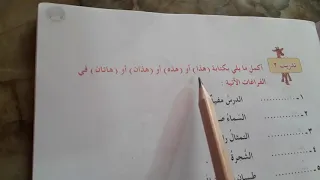 تدريب ٢
أكمل ما يلي بكتابة (هذا) أو (هذه) أو (هذان) أو (هاتان) في
الفراغات الآتية :
١- .......... الدرسُ
٢- .......... السماءُ
٣- .......... التمثالُ
٤- .......... الشجرةُ